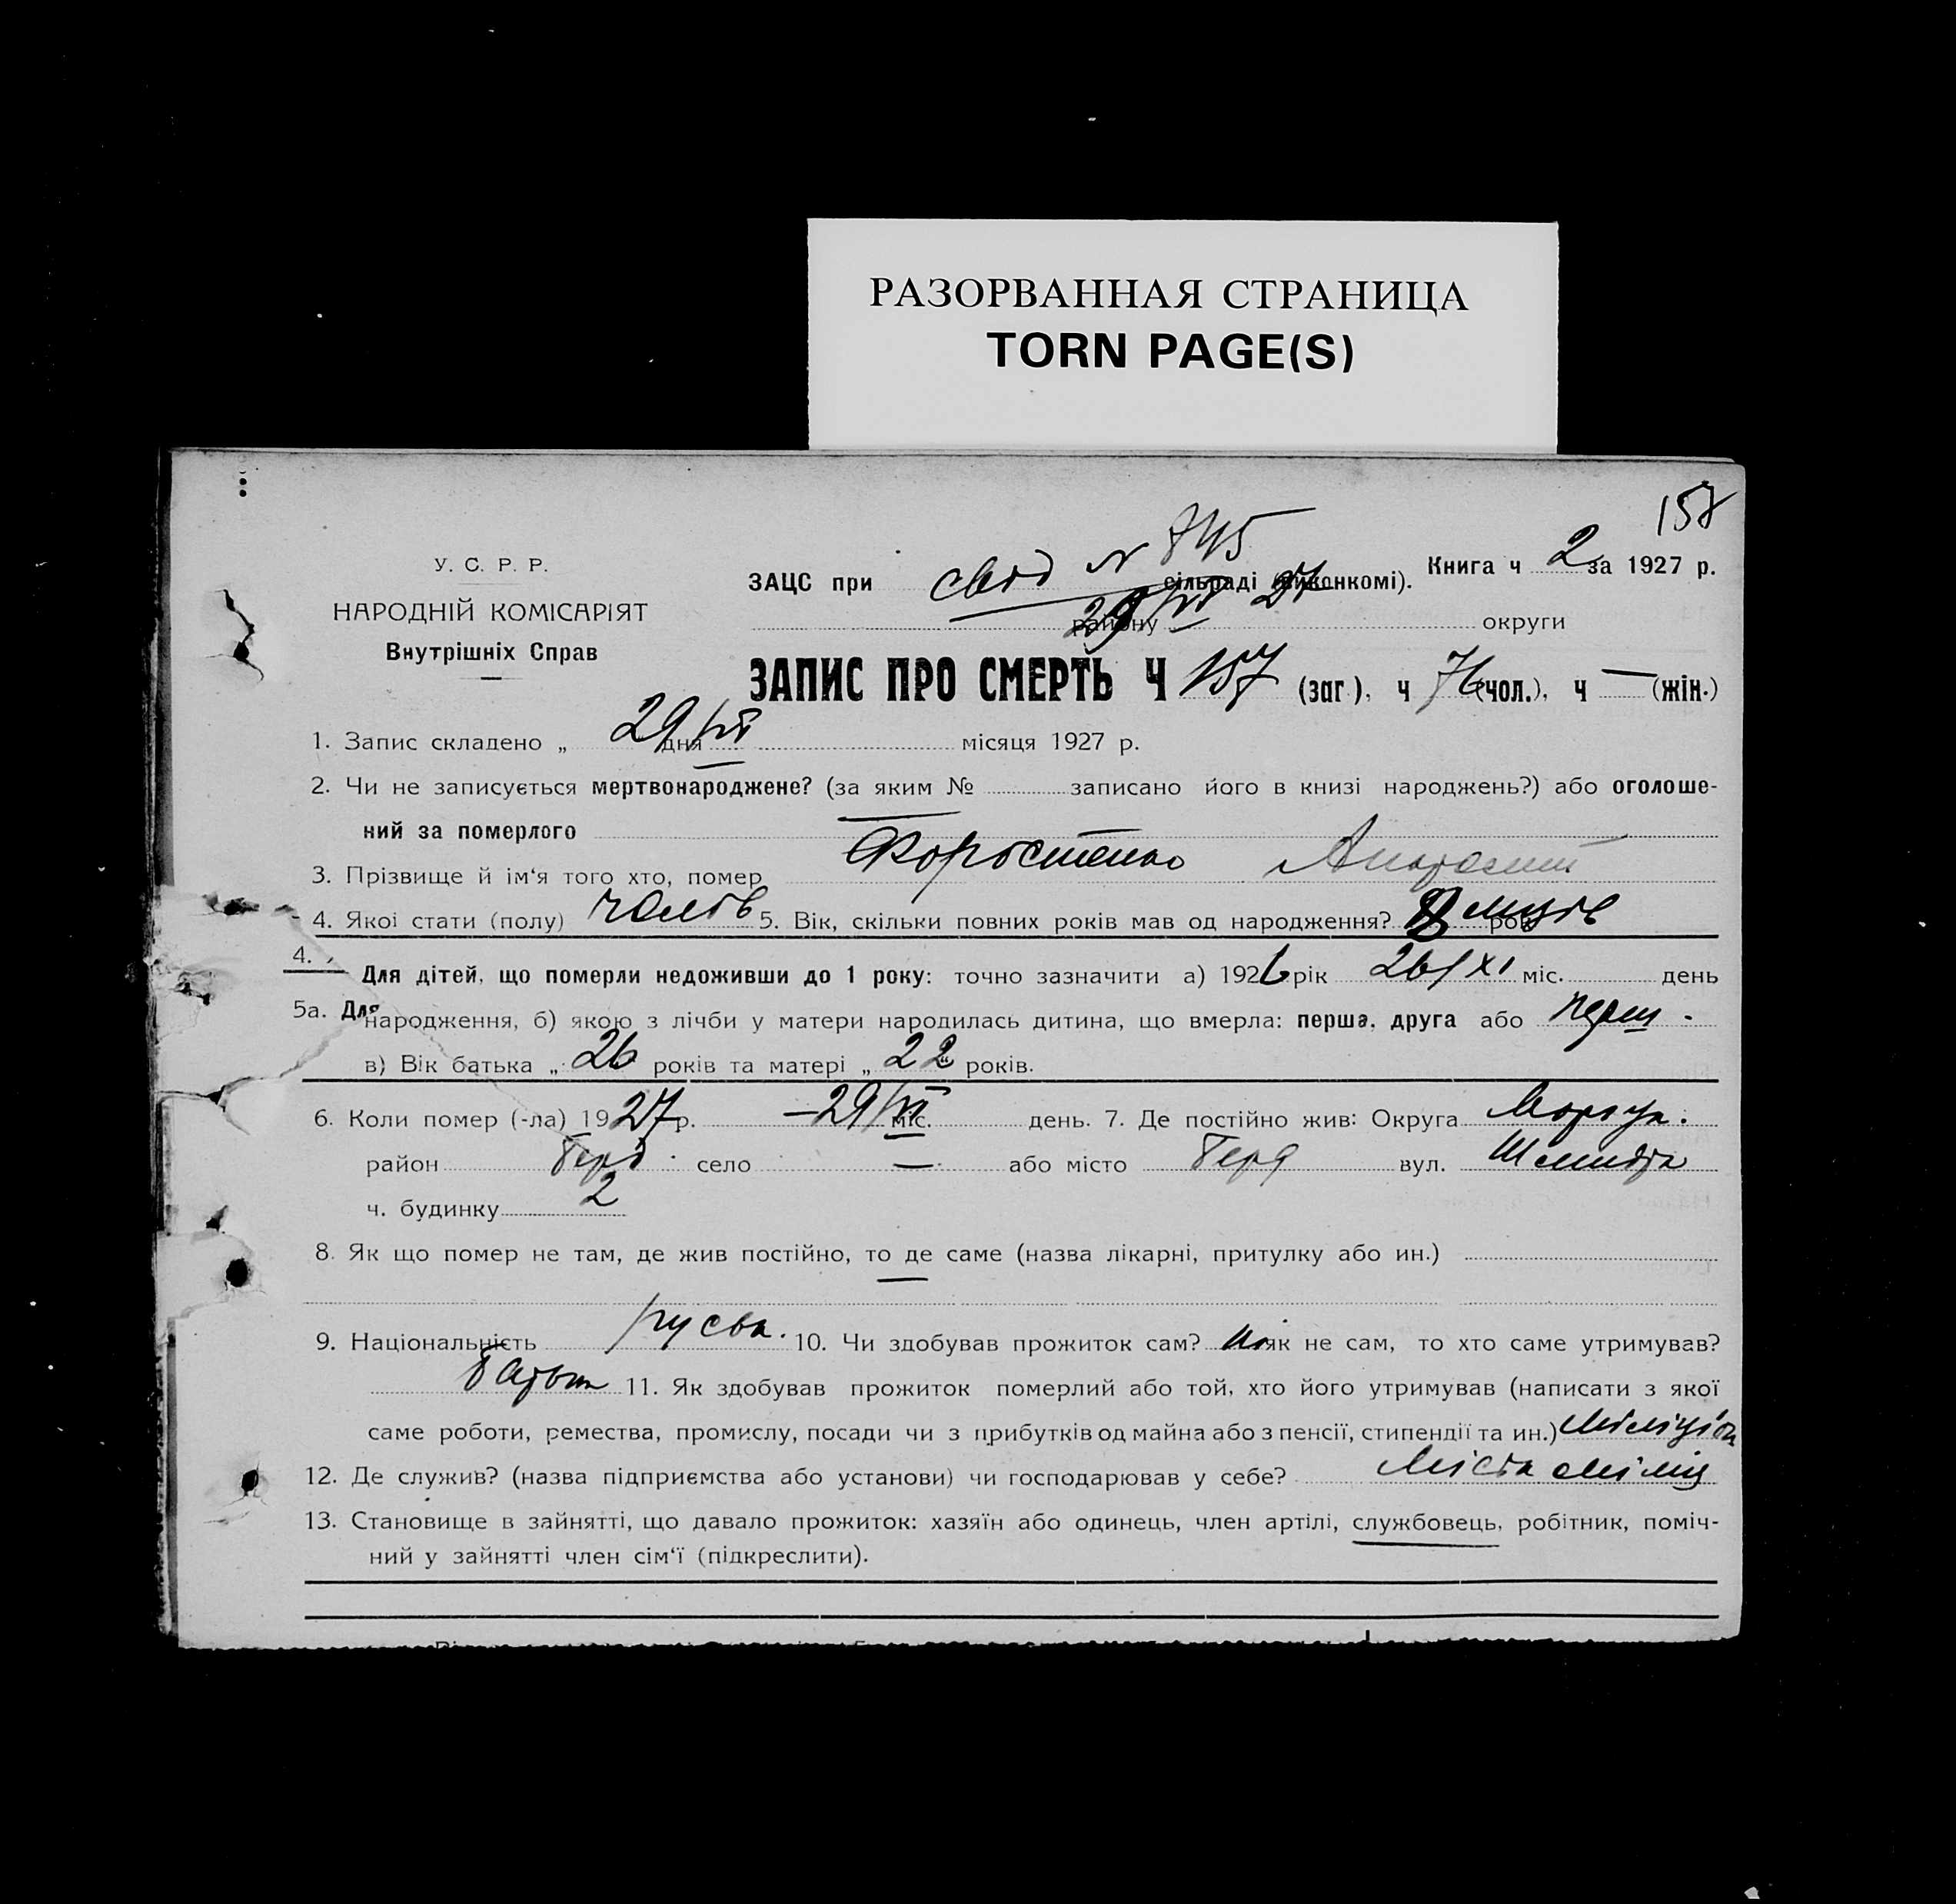 РАЗОРВАННАЯ СТРАНИЦА
TORN PAGE(S)
158
У. С. Р. Р.
НАРОДНІЙ КОМІСАРІЯТ
Внутрішніх Справ
N 845
ЗАЦС при свід сільраді (виконкомі). Книга ч 2 за 1927 р.
29/VI 27
району округи
ЗАПИС ПРО СМЕРТЬ Ч 157 (заг), ч 76 (чол.), ч — (жін.)
1. Запис складено „ 29/VI дня місяця 1927 р.
2. Чи не записується мертвонароджене? (за яким № записано його в книзі народжень?) або оголоше-
ний за померлого —
3. Прізвище й ім'я того хто, помер Форостенко Анатолий
4. Якої стати (полу) чолов 5. Вік, скільки повних років мав од народження? 8 місяців рок
4.
Для дітей, що померли недоживши до 1 року: точно зазначити а) 1926 рік 26/XI міс. день
5а. Для
народження, б) якою з лічби у матери народилась дитина, що вмерла: перша, друга або перш.
в) Вік батька „ 26 років та матері „ 22 років.
6. Коли помер (-ла) 1927 р. — 29/VI міс. день. 7. Де постійно жив: Округа Маріуп.
район Берд. село — або місто Берд вул. Шмидта
ч. будинку 2
8. Як що помер не там, де жив постійно, то де саме (назва лікарні, притулку або ин.)
—
9. Національність руська. 10. Чи здобував прожиток сам? Ні як не сам, то хто саме утримував?
батьки 11. Як здобував прожиток померлий або той, хто його утримував (написати з якої
саме роботи, ремества, промислу, посади чи з прибутків од майна або з пенсії, стипендії та ин.) Міліціон
12. Де служив? (назва підприємства або установи) чи господарював у себе? Міська міліц
13. Становище в зайнятті, що давало прожиток: хазяїн або одинець, член артілі, службовець, робітник, поміч-
ний у зайнятті член сім'ї (підкреслити).